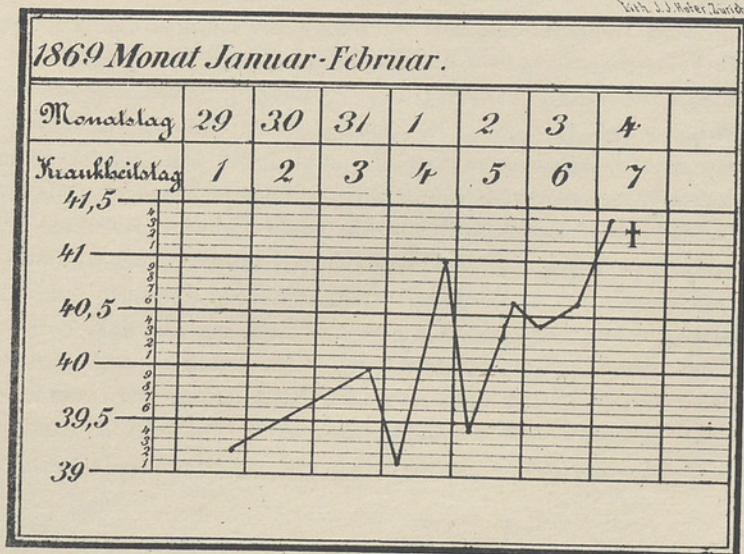 Lith. J. J. Hofer, Zürich
1869 Monat Januar-Februar.
Monatstag 29 30 31 1 2 3 4
Krankheitstag 1 2 3 4 5 6 7
41,5
4
3
2
1
†
41
9
8
7
6
40,5
4
3
2
1
40
9
8
7
6
39,5
4
3
2
1
39